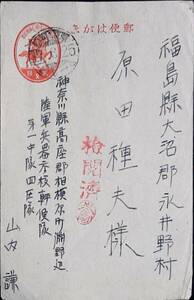 郵便はがき
福島縣大沼郡永井野村
原田種夫様
検閲済
神奈川縣高座郡相模原町淵野辺
陸軍兵器学校幹候隊
第一中隊四区隊
山内 謙